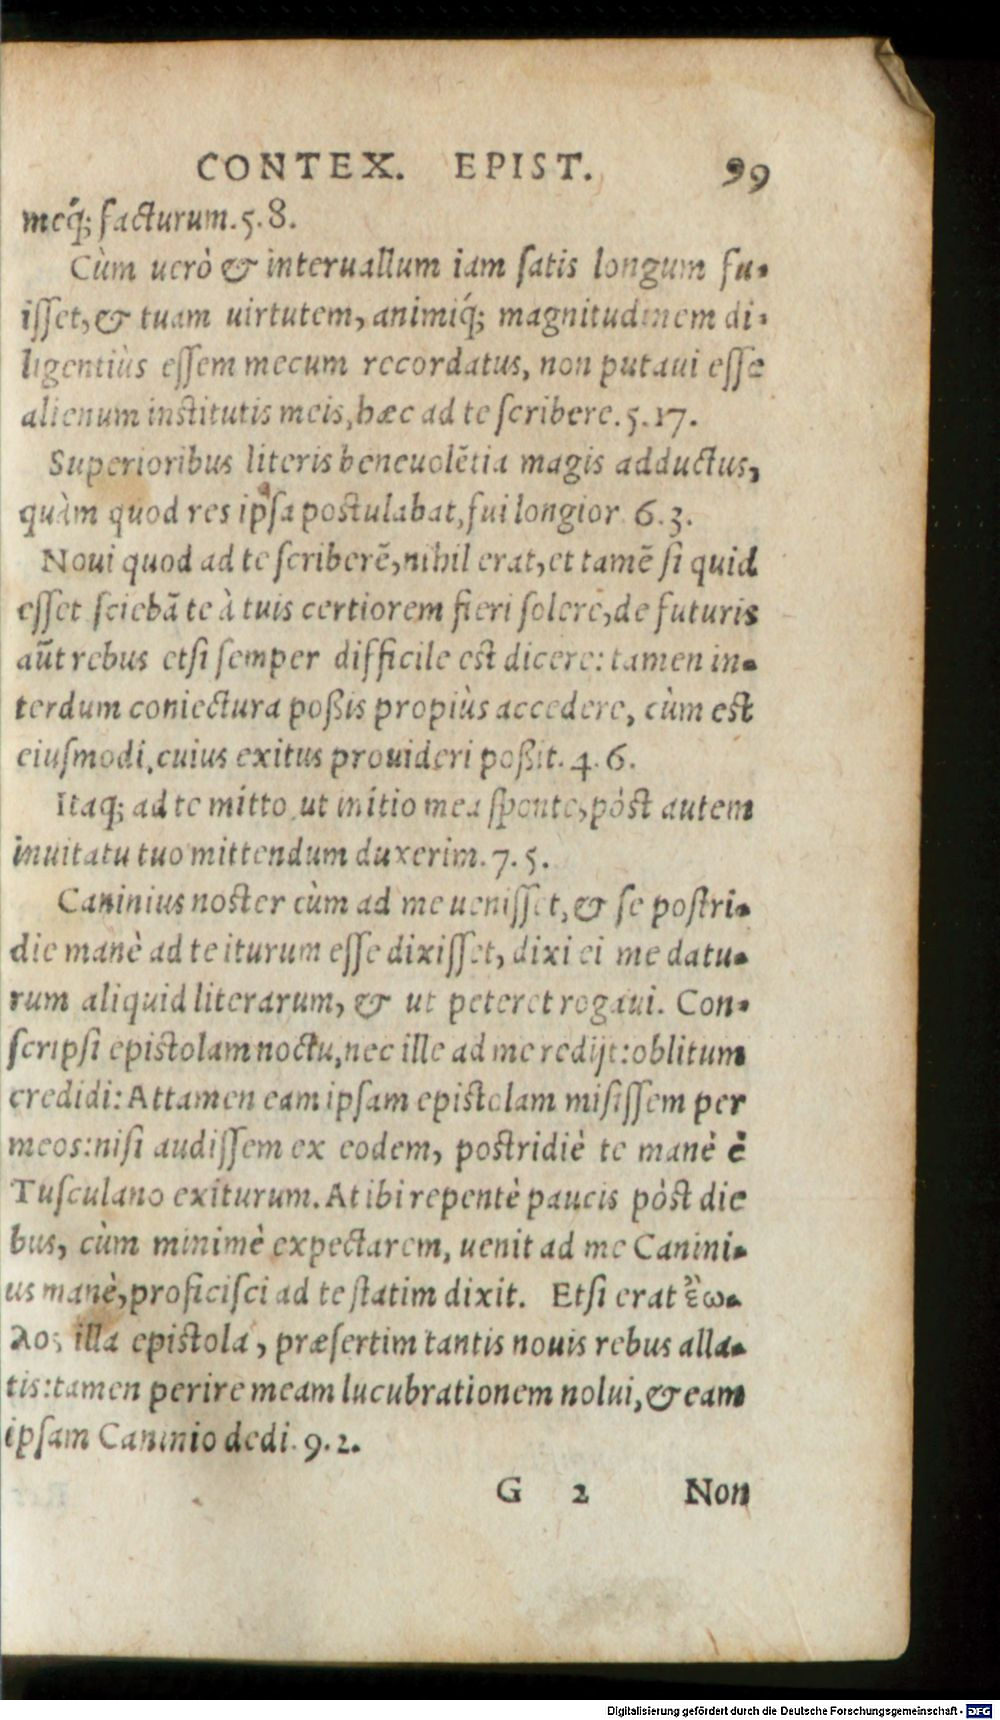 CONTEX. EPIST. 99
meq́; facturum. 5. 8.
Cùm uerò & interuallum iam satis longum fu-
isset, & tuam uirtutem, animiq́; magnitudinem di-
ligentiùs essem mecum recordatus, non putaui esse
alienum institutis meis, hæc ad te scribere. 5. 17.
Superioribus literis beneuolẽtia magis adductus,
quàm quod res ipsa postulabat, fui longior. 6. 3.
Noui quod ad te scriberẽ, nihil erat, et tamẽ si quid
esset sciebã te à tuis certiorem fieri solere, de futuris
aũt rebus etsi semper difficile est dicere: tamen in-
terdum coniectura poßis propiùs accedere, cùm est
eiusmodi, cuius exitus prouideri poßit. 4. 6.
Itaq; ad te mitto, ut initio mea sponte, pòst autem
inuitatu tuo mittendum duxerim. 7. 5.
Caninius noster cùm ad me uenisset, & se postri-
die manè ad te iturum esse dixisset, dixi ei me datu-
rum aliquid literarum, & ut peteret rogaui. Con-
scripsi epistolam noctu, nec ille ad me redijt: oblitum
credidi: Attamen eam ipsam epistolam misissem per
meos: nisi audissem ex eodem, postridiè te manè è
Tusculano exiturum. At ibi repentè paucis pòst die
bus, cùm minimè expectarem, uenit ad me Canini-
us manè, proficisci ad te statim dixit. Etsi erat ἕω-
λος illa epistola, præsertim tantis nouis rebus alla-
tis: tamen perire meam lucubrationem nolui, & eam
ipsam Caninio dedi. 9. 2.
G 2 Non
Digitalisierung gefördert durch die Deutsche Forschungsgemeinschaft - DFG